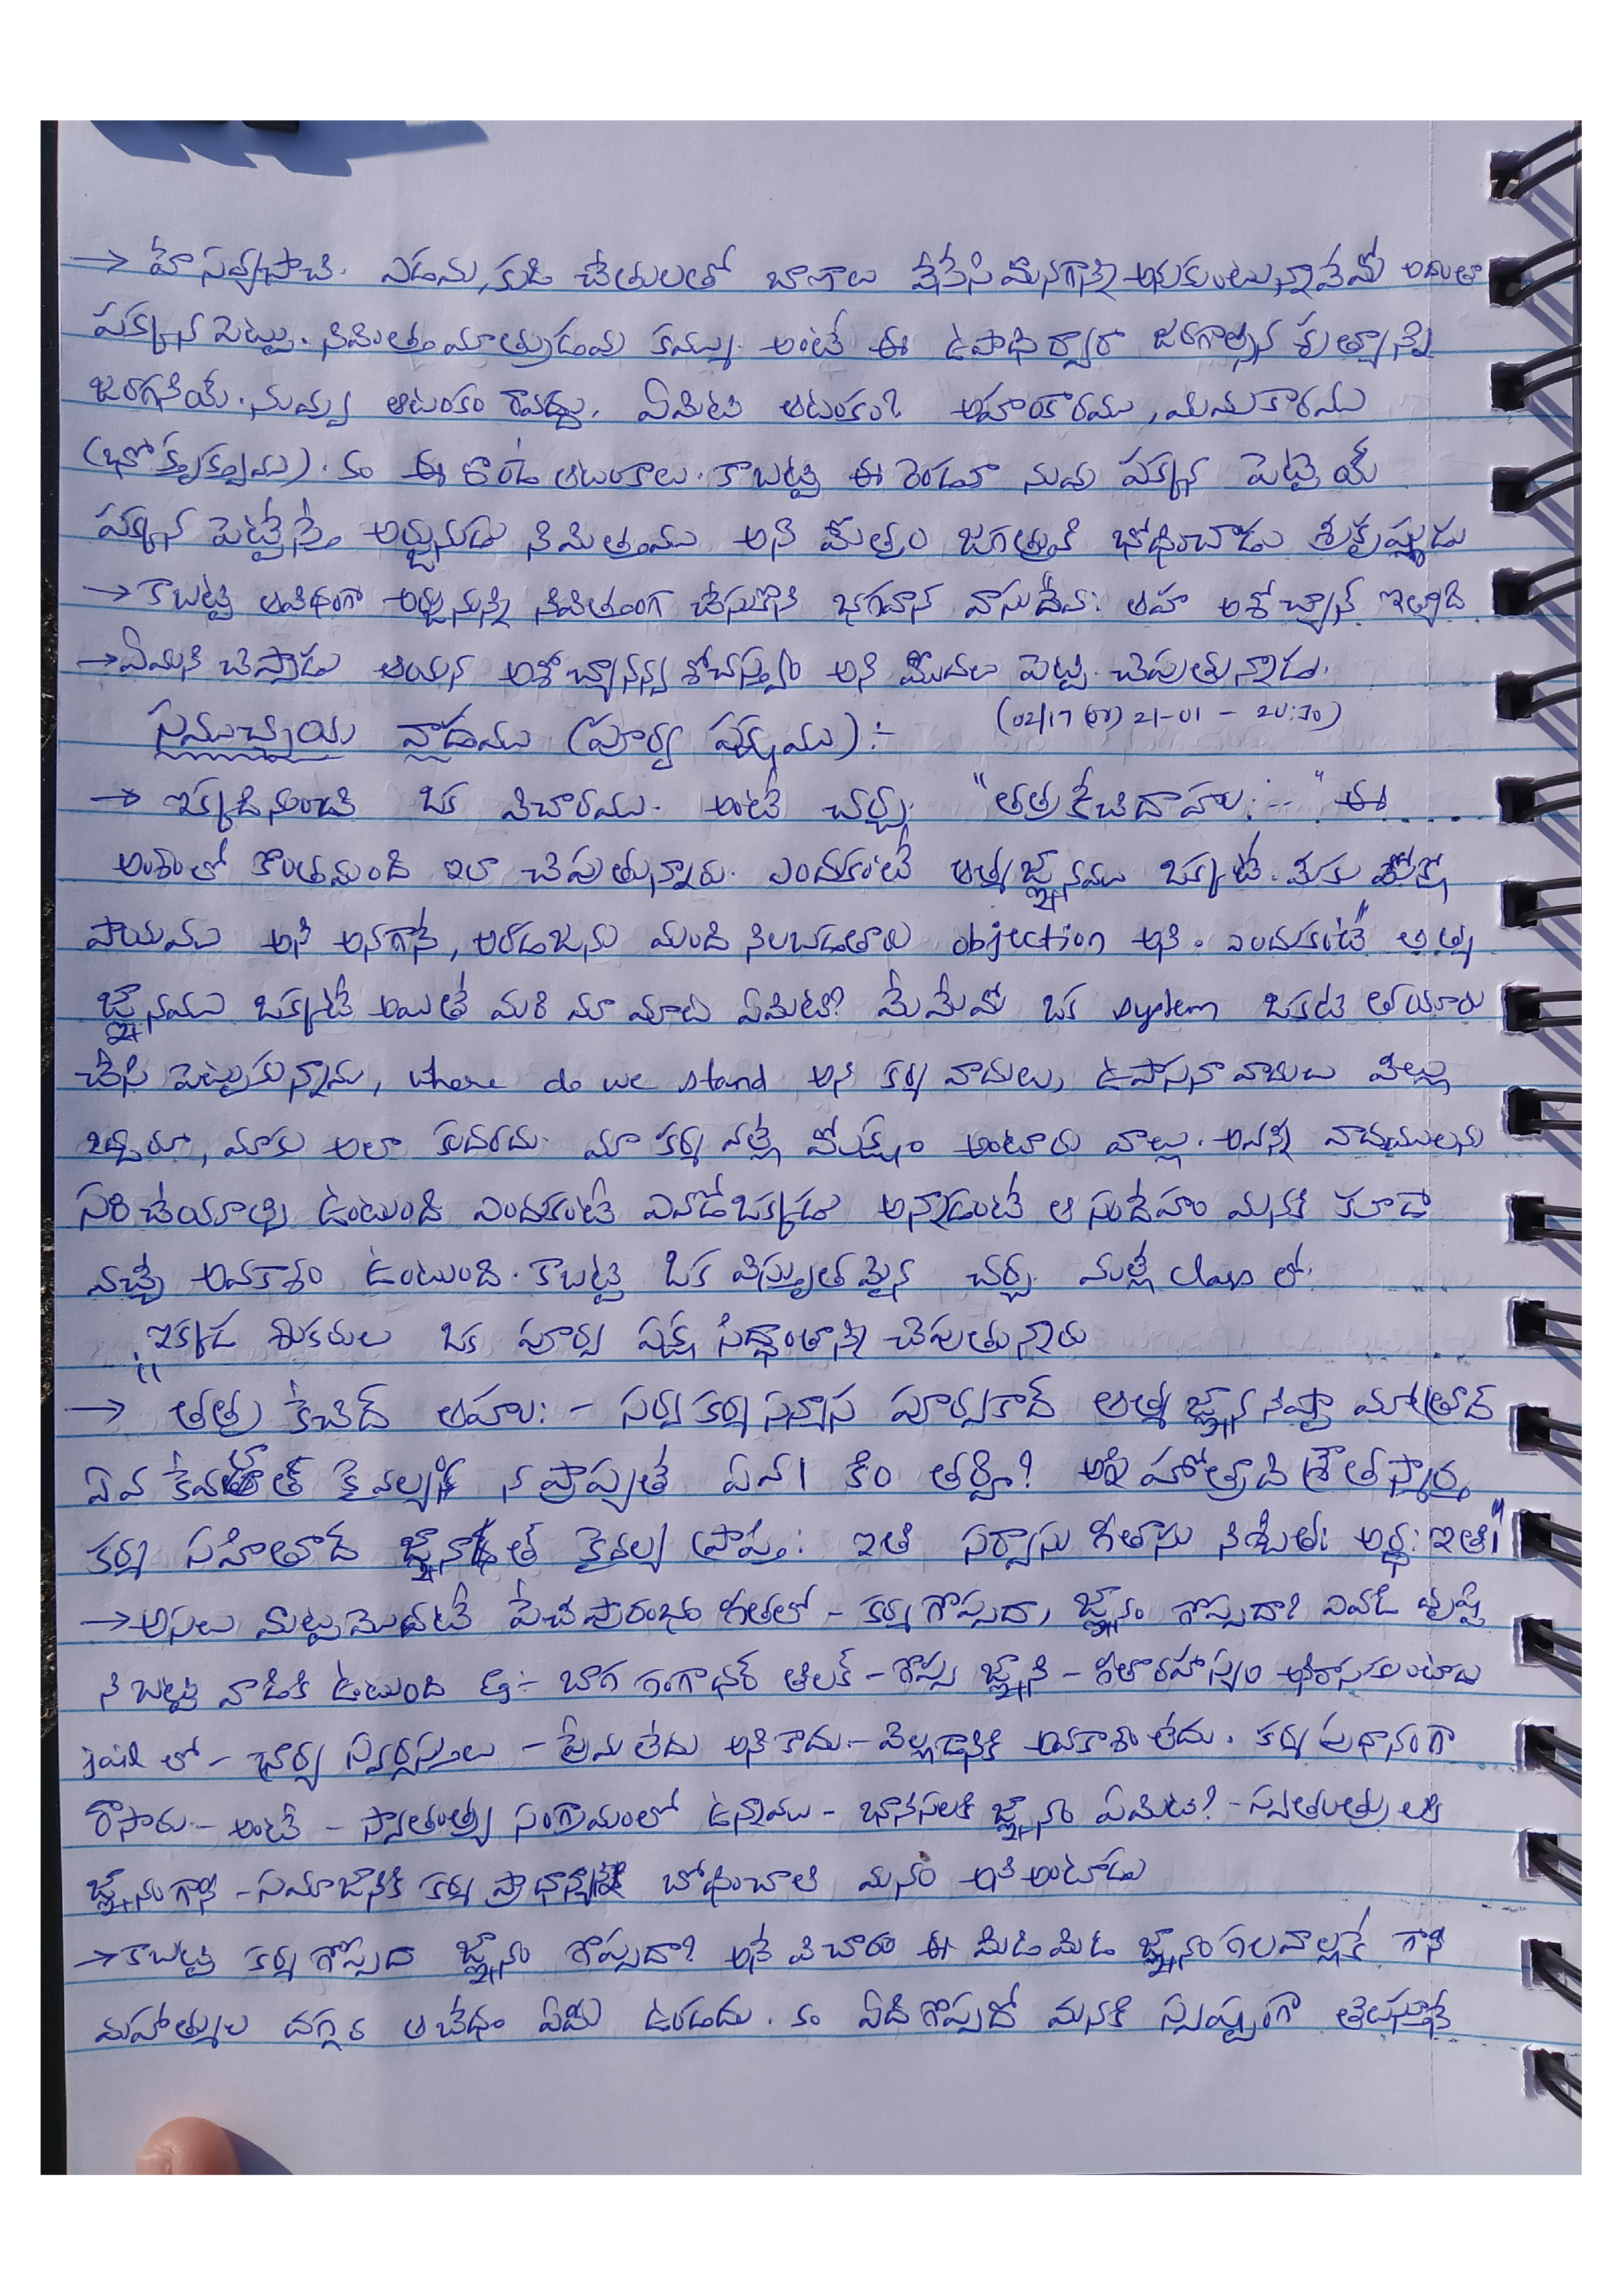 → హే సవ్యసాచి. ఎడమ, కుడి చేతులతో బాణాలు వేసేసి మొనగాణ్ణి అనుకుంటున్నావేమో అదంతా
పక్కన పెట్టు. నిమిత్తం మాత్రుడవు కమ్ము. అంటే ఈ ఉపాధి ద్వారా జరగాల్సిన కృత్యాన్ని
జరగనియ్. నువ్వు ఆటంకం రావద్దు. ఏమిటి ఆటంకం? అహంకారము, మమకారము
(భోక్తృత్వము). కం ఈ రెండే ఆటంకాలు. కాబట్టి ఈ రెండూ నువు పక్కన పెట్టెయ్
పక్కన పెట్టేస్తే అర్జునుడు నిమిత్తము అని మాత్రం జగత్తుకి భోధించాడు శ్రీకృష్ణుడు
→ కాబట్టి ఆవిధంగా అర్జునున్ని నిమిత్తంగా చేసుకొని భగవాన్ వాసుదేవః ఆహ అశోచ్యాన్ ఇత్యాది
→ ఏమని చెప్పాడు ఆయన అశోచ్యానన్వశోచస్త్వం అని మొదలు పెట్టి చెపుతున్నాడు.
సముచ్చయ వాదము (పూర్వ పక్షము) :- (02/17 21-01 - 20:30)
→ ఇక్కడినుంచి ఒక విచారము. అంటే చర్చ. "తత్ర కేచిదాహుః --" ఈ
అంశంలో కొంతమంది ఇలా చెపుతున్నారు. ఎందుకంటే ఆత్మజ్ఞానము ఒక్కటే మోక్షో
పాయము అని అనగానే, అరడజను మంది నిలబడతారు objection అని. ఎందుకంటే ఆత్మ
జ్ఞానము ఒక్కటే అయితే మరి మా మాట ఏమిటి? మేమేమో ఒక system ఒకటి తయారు
చేసి పెట్టుకున్నాము, where do we stand అని కర్మ వాదులు, ఉపాసనా వాదులు వీల్లు
ఒప్పరూ, మాకు అలా కుదరదు. మా కర్మ వల్లే మోక్షం అంటారు వాల్లు. అవన్ని వాదములను
సరి చేయాల్సి ఉంటుంది ఎందకంటే ఎవడోఒక్కడు అన్నాడంటే ఆ సందేహం మనకి కూడా
వచ్చే అవకాశం ఉంటుంది. కాబట్టి ఒక విస్తృతమైన చర్చ. మల్లీ class లో.
ఇక్కడ శంకరుల ఒక పూర్వ పక్ష సిద్ధాంతాన్ని చెపుతున్నారు
→ "తత్ర కేచిద్ ఆహుః - సర్వకర్మసన్యాస పూర్వకాద్ ఆత్మజ్ఞాననిష్టా మాత్రాద్
ఏవ కేవలాత్ కైవల్యం న ప్రాప్యతే ఏవ। కిం తర్హి? అగ్నిహోత్రాది శ్రౌతస్మార్త
కర్మ సహితాద్ జ్ఞానాత్ కైవల్య ప్రాప్తిః ఇతి సర్వాసు గీతాసు నిశ్చితః అర్థః ఇతి।"
→ అసలు మట్టమొదటే పేచి ప్రారంభం గీతలో - కర్మ గొప్పదా, జ్ఞానం గొప్పదా? ఎవడి దృష్టి
ని బట్టి వాడికి ఉటుంది ఉ:- బాగ గంగాధర్ తిలక్ - గొప్ప జ్ఞాని - గీతారహస్యం అనిరాసుకుంటూ
jail లో - భార్య స్వర్గస్తులు - ప్రేమ లేదు అని కాదు - వెల్లడానికి అవకాశం లేదు. కర్మ ప్రధానంగా
రాసారు - అంటే - స్వాతంత్ర్య సంగ్రామంలో ఉన్నాము - భానిసలకి జ్ఞానం ఏమిటి? - స్వతంత్రులకి
జ్ఞానంగాని - సమాజానికి కర్మ ప్రాధాన్యతే బోధించాలి మనం అని అంటాడు
→ కాబట్టి కర్మ గొప్పదా జ్ఞానం గొప్పదా? అనే విచారం ఈ మిడిమిడి జ్ఞానంగలవాల్లకే గాని
మహాత్ముల దగ్గర ఆ బేధం ఏమీ ఉండదు. కం ఏది గొప్పదో మనకి స్పష్టంగా తెలుస్తూనే